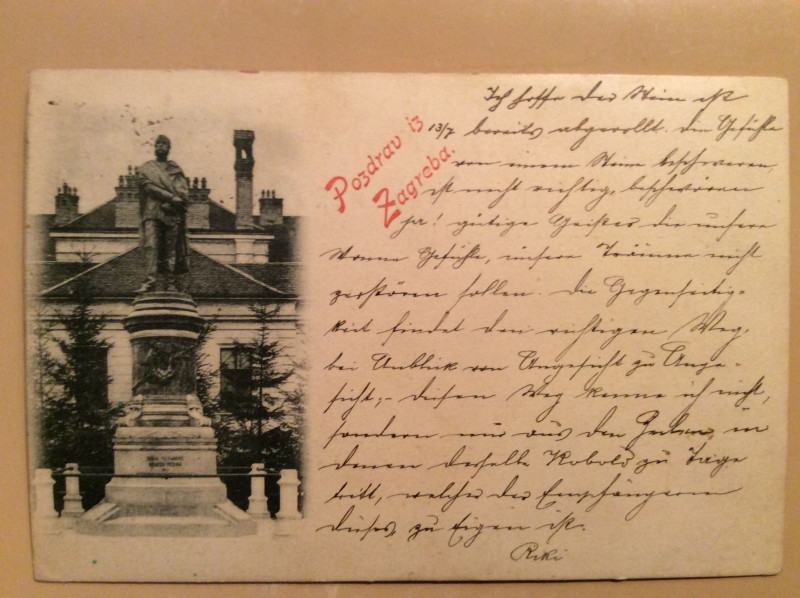 Pozdrav iz
Zagreba.
13/7
Ich hoffe der Stein ist
bereits abgerollt. Den Gefühle
von einem Steine beschweren,
ist nicht richtig, beschwören
ja! gütige Geister die unsere
Wonne Gefühle, unsere Träume nicht
zerstören sollen. Die Gegenseitig-
keit findet den richtigen Weg,
bei Anblick von Angesicht zu Ange-
sicht; - diesen Weg kenne ich nicht,
sondern nur aus den in
denen derselbe Kobold zu Tage
tritt, welcher der Empfängerin
dieses, zu Eigen ist.
Riki